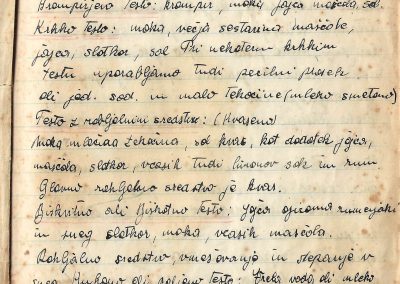 Krompirjevo testo: krompir, moka, jajca maščoba, sol.
Krhko testo: moka, večja sestavina maščobe,
jajca, slatkor, sol Pri nekaterem krhkem
testu uporabljamo tudi pecilni prašek
ali jed. sod. in malo tekočine (mleko smetano)
Testo z rahljalnimi sredstvi: (Kvašeno)
moka mlačna tekočina, sol kvas, kot dodatek jajca,
maščoba, slatkor, včasih tudi limonov sok in rum
Glavno rahljalno sredstvo je kvas.
Biskvitno ali Biskotno testo: Jajca oziroma rumenjaki
in sneg slatkor, moka, včasih maščoba.
Rahljalno sredstvo, umešavanje in stepanje v
sneg ali testo: Vrela voda ali mleko